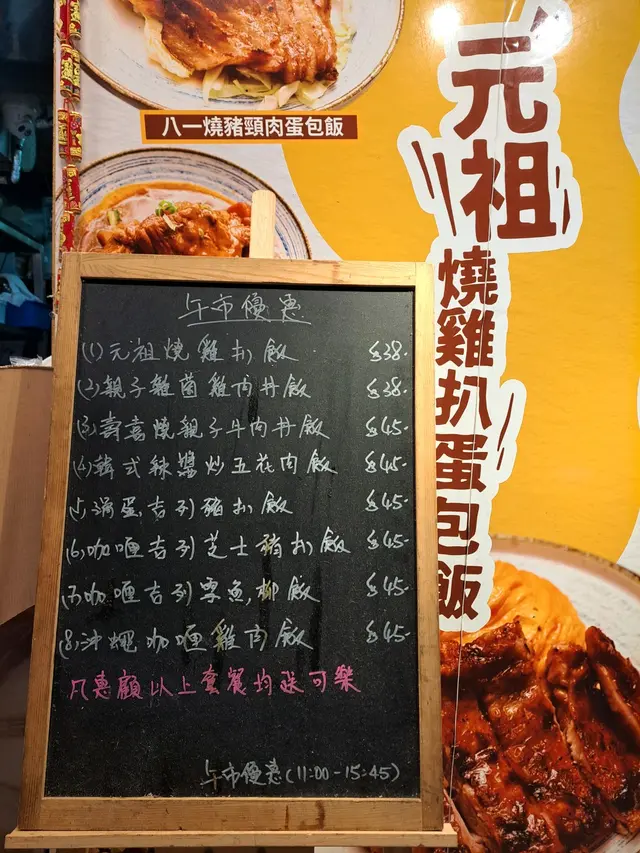 八一燒豬頸肉蛋包飯
元祖
燒雞扒蛋包飯
午市優惠
(1)元祖燒雞扒飯 $38-
(2)親子雜菌雞肉丼飯 $38-
(3)壽喜燒親子牛肉丼飯 $45-
(4)韓式辣醬炒五花肉飯 $45-
(5)滑蛋吉列豬扒飯 $45-
(6)咖喱吉列芝士豬扒飯 $45-
(7)咖喱吉列魚柳飯 $45-
(8)沖繩咖喱雞肉飯 $45-
凡惠顧以上套餐均送可樂
午市優惠(11:00-15:45)